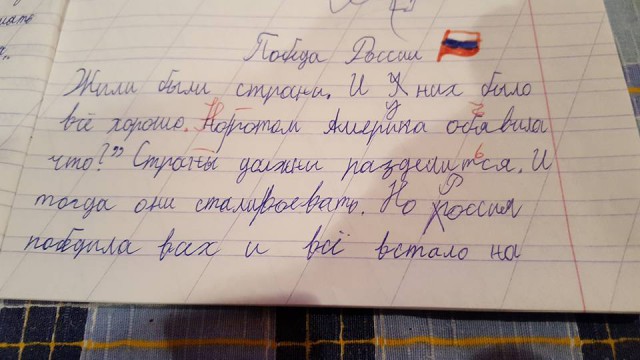 Победа России
Жили были страни. И у них было
всё хорошо. Но потом Америка обявила
что?" Страны должни разделится. И
тогда они стали воевать. Но Россия
победила всех и всё встало на